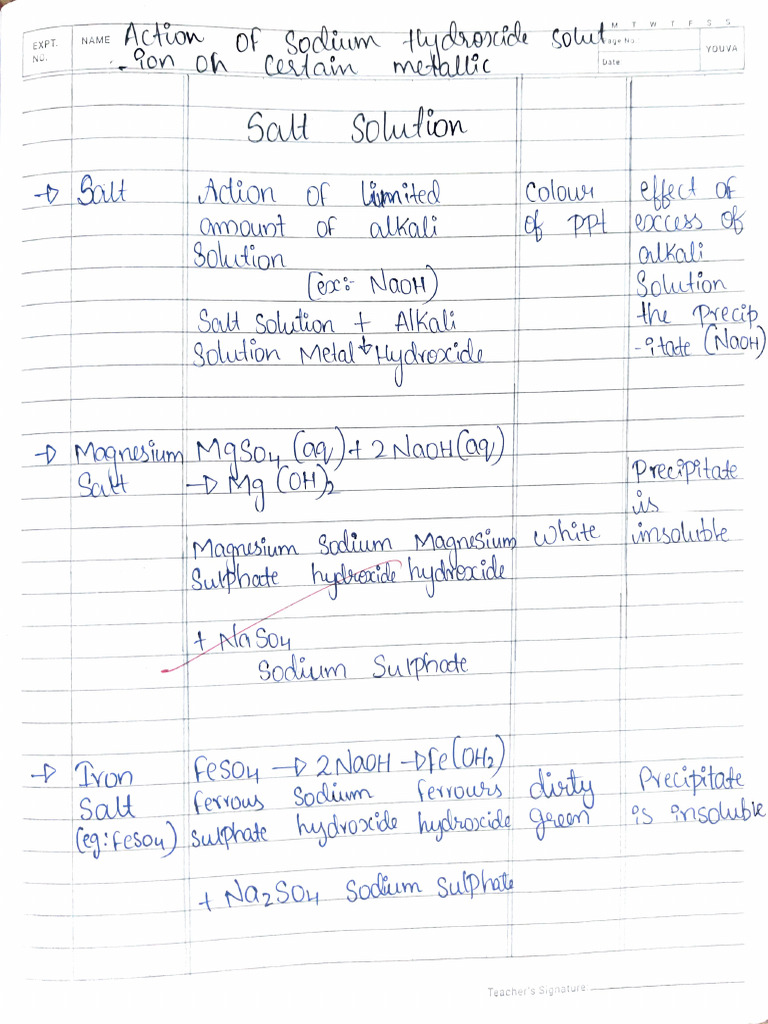 EXPT. NO. NAME Action of Sodium Hydroxide solut
-ion on certain metallic
M T W T F S S
Page No.
Date
YOUVA
Salt Solution
→ Salt
Action of limited
amount of alkali
Solution
(ex:- NaOH)
Salt Solution + Alkali
Solution Metal ↓ Hydroxide
colour
of ppt
effect of
excess of
alkali
Solution
the Precip
-itate (NaOH)
→ Magnesium
Salt
MgSO4 (aq) + 2NaOH(aq)
→ Mg(OH)2
Magnesium Sodium Magnesium
Sulphate hydroxide hydroxide
+ NaSO4
Sodium Sulphate
White
Precipitate
is
insoluble
→ Iron
Salt
(eg: FeSO4)
FeSO4 → 2NaOH → Fe(OH2)
ferrous Sodium ferrours
sulphate hydroxide hydroxide
+ Na2SO4 Sodium Sulphate
dirty
green
Precipitate
is insoluble
Teacher's Signature